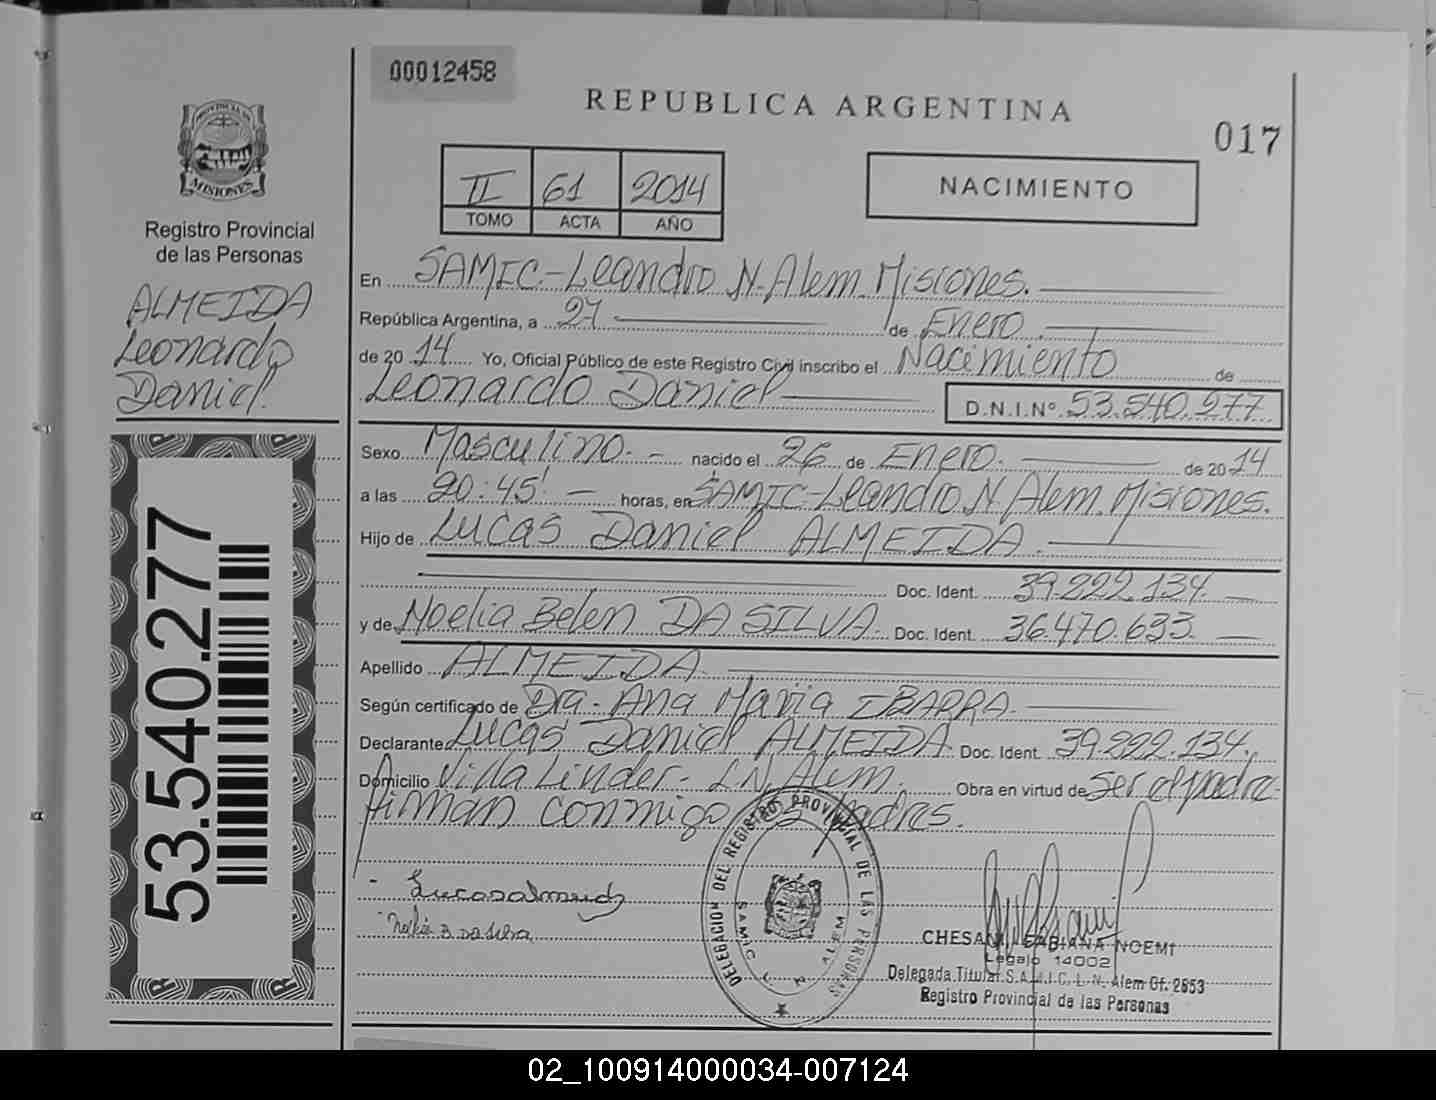 00012458
REPUBLICA ARGENTINA
017
MISIONES
Registro Provincial
de las Personas
II 61 2014
TOMO ACTA AÑO
NACIMIENTO
ALMEIDA
Leonardo
Daniel
En SAMIC-Leandro N. Alem. Misiones.
República Argentina, a 27 de Enero.
de 2014 Yo, Oficial Público de este Registro Civil inscribo el Nacimiento de
Leonardo Daniel D.N.I.Nº 53.540.277
Sexo Masculino.- nacido el 26 de Enero. de 2014
a las 20:45' horas, en SAMIC-Leandro N. Alem. Misiones.
Hijo de Lucas Daniel ALMEIDA.
Doc. Ident. 39.222.134
y de Noelia Belen DA SILVA. Doc. Ident. 36.470.633
Apellido ALMEIDA.
Según certificado de Dra. Ana Maria IBARRA.
Declarante Lucas Daniel ALMEIDA. Doc. Ident. 39.222.134.
Domicilio Villa Linder- L.N. Alem. Obra en virtud de ser el padre-
Firman conmigo padres.
53.540.277
Lucas almeida
Noelia B. Da Silva
DELEGACION DEL REGISTRO PROVINCIAL DE LAS PERSONAS
SAMIC L. N. ALEM
CHESANI, FABIANA NOEMI
Legajo 14002
Delegada Titular S.A.M.I.C. L. N. Alem Of. 2653
Registro Provincial de las Personas
02_100914000034-007124